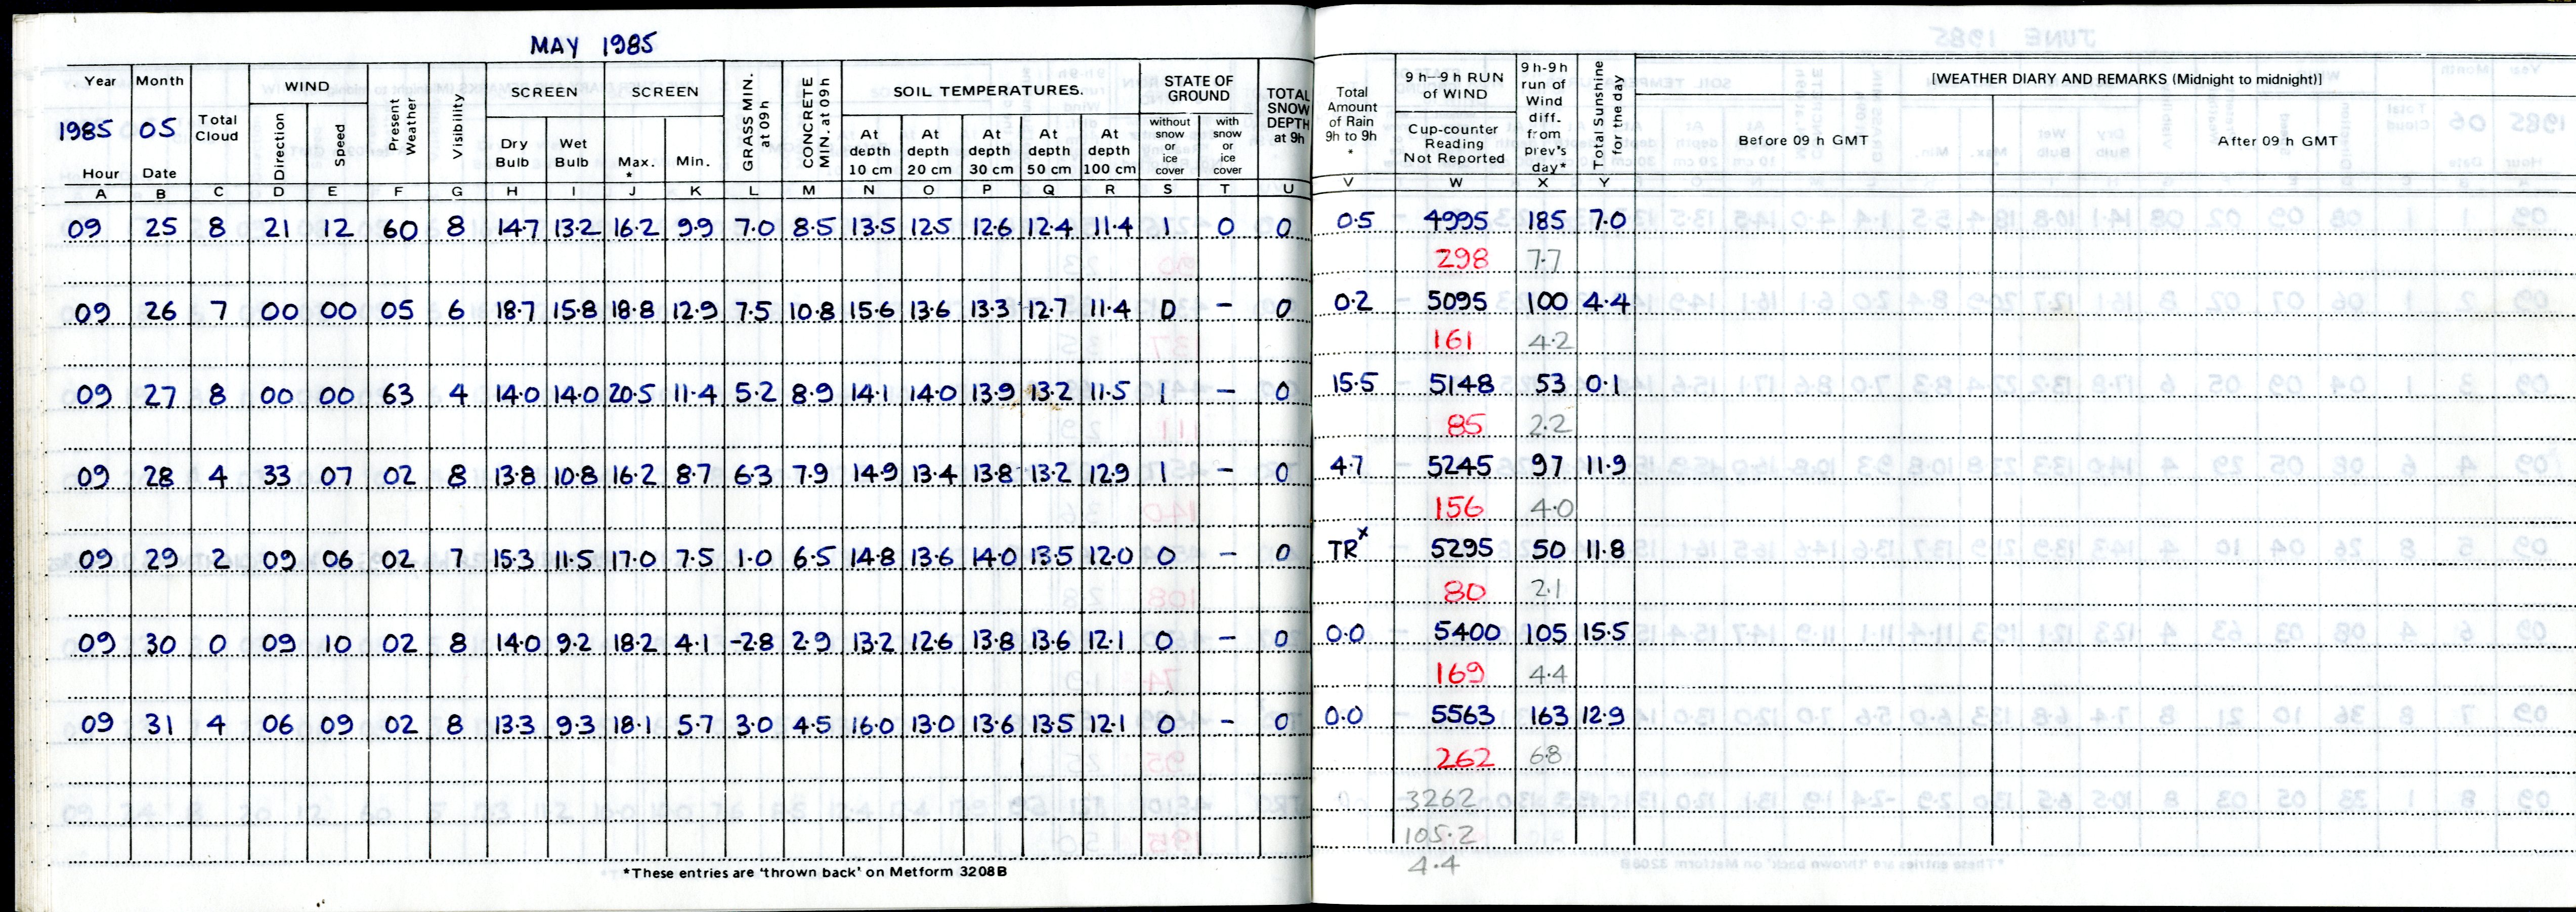 MAY 1985
Year Month Total Cloud WIND Present Weather Visibility SCREEN SCREEN GRASS MIN. at 09h CONCRETE MIN. at 09h SOIL TEMPERATURES. STATE OF GROUND TOTAL SNOW DEPTH at 9h Total Amount of Rain 9h to 9h * 9h–9h RUN of WIND 9h-9h run of Wind diff. from prev's day* Total Sunshine for the day [WEATHER DIARY AND REMARKS (Midnight to midnight)]
1985 05 Direction Speed Dry Bulb Wet Bulb Max. * Min. At depth 10 cm At depth 20 cm At depth 30 cm At depth 50 cm At depth 100 cm without snow or ice cover with snow or ice cover Cup-counter Reading Not Reported Before 09 h GMT After 09 h GMT
Hour Date
A B C D E F G H I J K L M N O P Q R S T U V W X Y
09 25 8 21 12 60 8 14.7 13.2 16.2 9.9 7.0 8.5 13.5 12.5 12.6 12.4 11.4 1 0 0 0.5 4995 185 7.0
298 7.7
09 26 7 00 00 05 6 18.7 15.8 18.8 12.9 7.5 10.8 15.6 13.6 13.3 12.7 11.4 0 – 0 0.2 5095 100 4.4
161 4.2
09 27 8 00 00 63 4 14.0 14.0 20.5 11.4 5.2 8.9 14.1 14.0 13.9 13.2 11.5 1 – 0 15.5 5148 53 0.1
85 2.2
09 28 4 33 07 02 8 13.8 10.8 16.2 8.7 6.3 7.9 14.9 13.4 13.8 13.2 12.9 1 – 0 4.7 5245 97 11.9
156 4.0
09 29 2 09 06 02 7 15.3 11.5 17.0 7.5 1.0 6.5 14.8 13.6 14.0 13.5 12.0 0 – 0 TR x 5295 50 11.8
80 2.1
09 30 0 09 10 02 8 14.0 9.2 18.2 4.1 -2.8 2.9 13.2 12.6 13.8 13.6 12.1 0 – 0 0.0 5400 105 15.5
169 4.4
09 31 4 06 09 02 8 13.3 9.3 18.1 5.7 3.0 4.5 16.0 13.0 13.6 13.5 12.1 0 – 0 0.0 5563 163 12.9
262 6.8
3262
105.2
4.4
*These entries are 'thrown back' on Metform 3208B